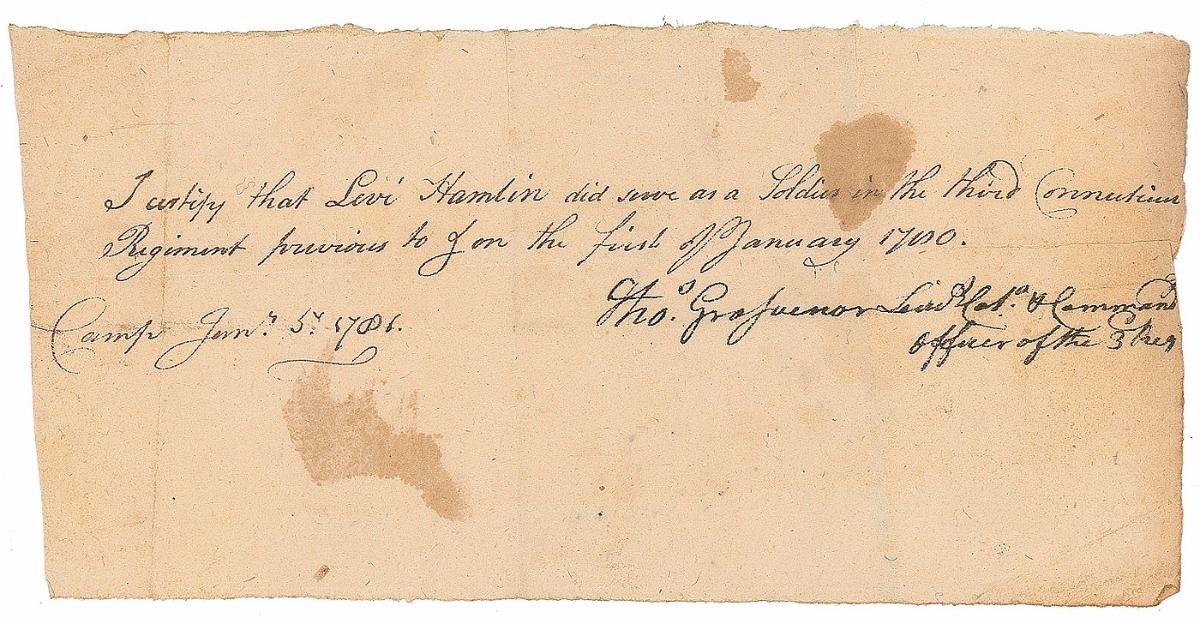 I certify that Levi Hamlin did serve as a Soldier in the third Connecticut
Regiment previous to & on the first of January 1780.
Thos. Grosvenor Lieut Col. & Command
Camp Jany. 5th 1781.
officer of the 3 Reg